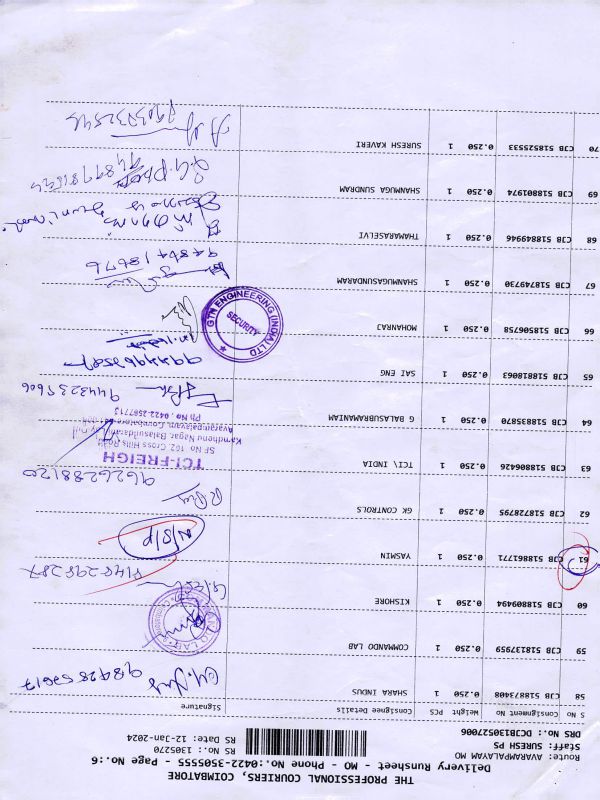 THE PROFESSIONAL COURIERS, COIMBATORE
Delivery Runsheet - MO - Phone No.:0422-3505555 - Page No.:6
Route: AVARAMPALAYAM MO
Staff: SURESH PS
RS No.: 1305270
DRS No.: DCJB130527006
RS Date: 12-Jan-2024
S No Consignment No Weight PCS Consignee Details Signature
58 CJB 518873408 0.250 1 SHARA INDUS
59 CJB 518137959 0.250 1 COMMANDO LAB
60 CJB 518809494 0.250 1 KISHORE
61 CJB 518861771 0.250 1 YASMIN N/S/P
62 CJB 518728795 0.250 1 GK CONTROLS
9626288120
63 CJB 518806426 0.250 1 TCI\ INDIA
TCI-FREIGH
SF No. 102, Cross Hills Road
Kamdhenu Nagar, Balasundaram
Avarampalayam, Coimbatore
Ph No. 0422-2567713
64 CJB 518835870 0.250 1 G BALASUBRAMANIAM
65 CJB 518818063 0.250 1 SAI ENG
66 CJB 518590758 0.250 1 MOHANRAJ
GTN ENGINEERING (INDIA) LTD
SECURITY
67 CJB 518749730 0.250 1 SHANMUGASUNDARAM
68 CJB 518849946 0.250 1 THAMARAISELVI
69 CJB 518801974 0.250 1 SHANMUGA SUNDRAM
70 CJB 518525533 0.250 1 SURESH KAVERI